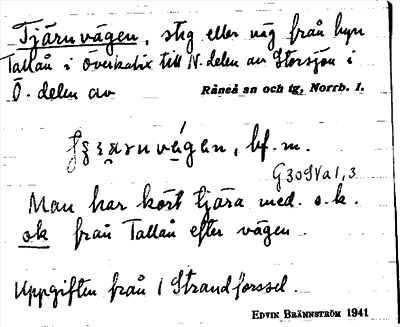 Tjärnvägen, stig eller väg från byn
Tallån i Överkalix till N. delen av Storsjön i
Ö. delen av Råneå sn och tg, Norrb. l.
vä́gen, bf. m.
G309Va1,3
Man har kört tjära med s.k.
ok från Tallån efter vägen.
Uppgiften från I Strandforssel.
EDVIN BRÄNNSTRÖM 1941